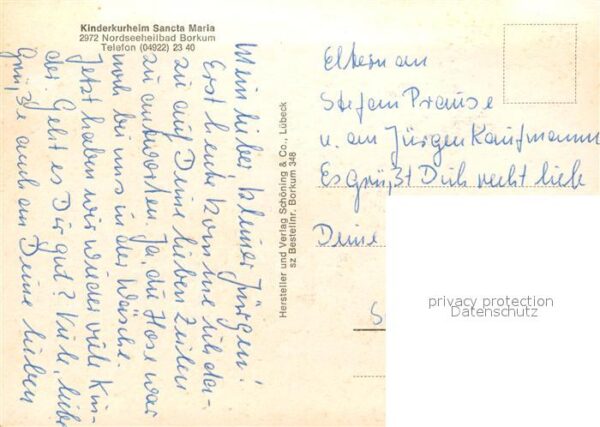 Kinderkurheim Sancta Maria
2972 Nordseeheilbad Borkum
Telefon (04922) 23 40
Mein lieber kleiner Jürgen!
Erst heute komme ich da-
zu auf Deine lieben Zeilen
zu antworten. Ja, die Hose war
noch bei uns in der Wäsche.
Jetzt haben wir wieder viele Kin-
der. Geht es Dir gut? Viele, liebe
Grüße auch an Deine lieben
Hersteller und Verlag Schöning & Co., Lübeck
sz Bestellnr. Borkum 348
Eltern an
Stefan Prause
u. an Jürgen Kaufmann
Es grüßt Dich recht lieb
Deine
S
privacy protection
Datenschutz